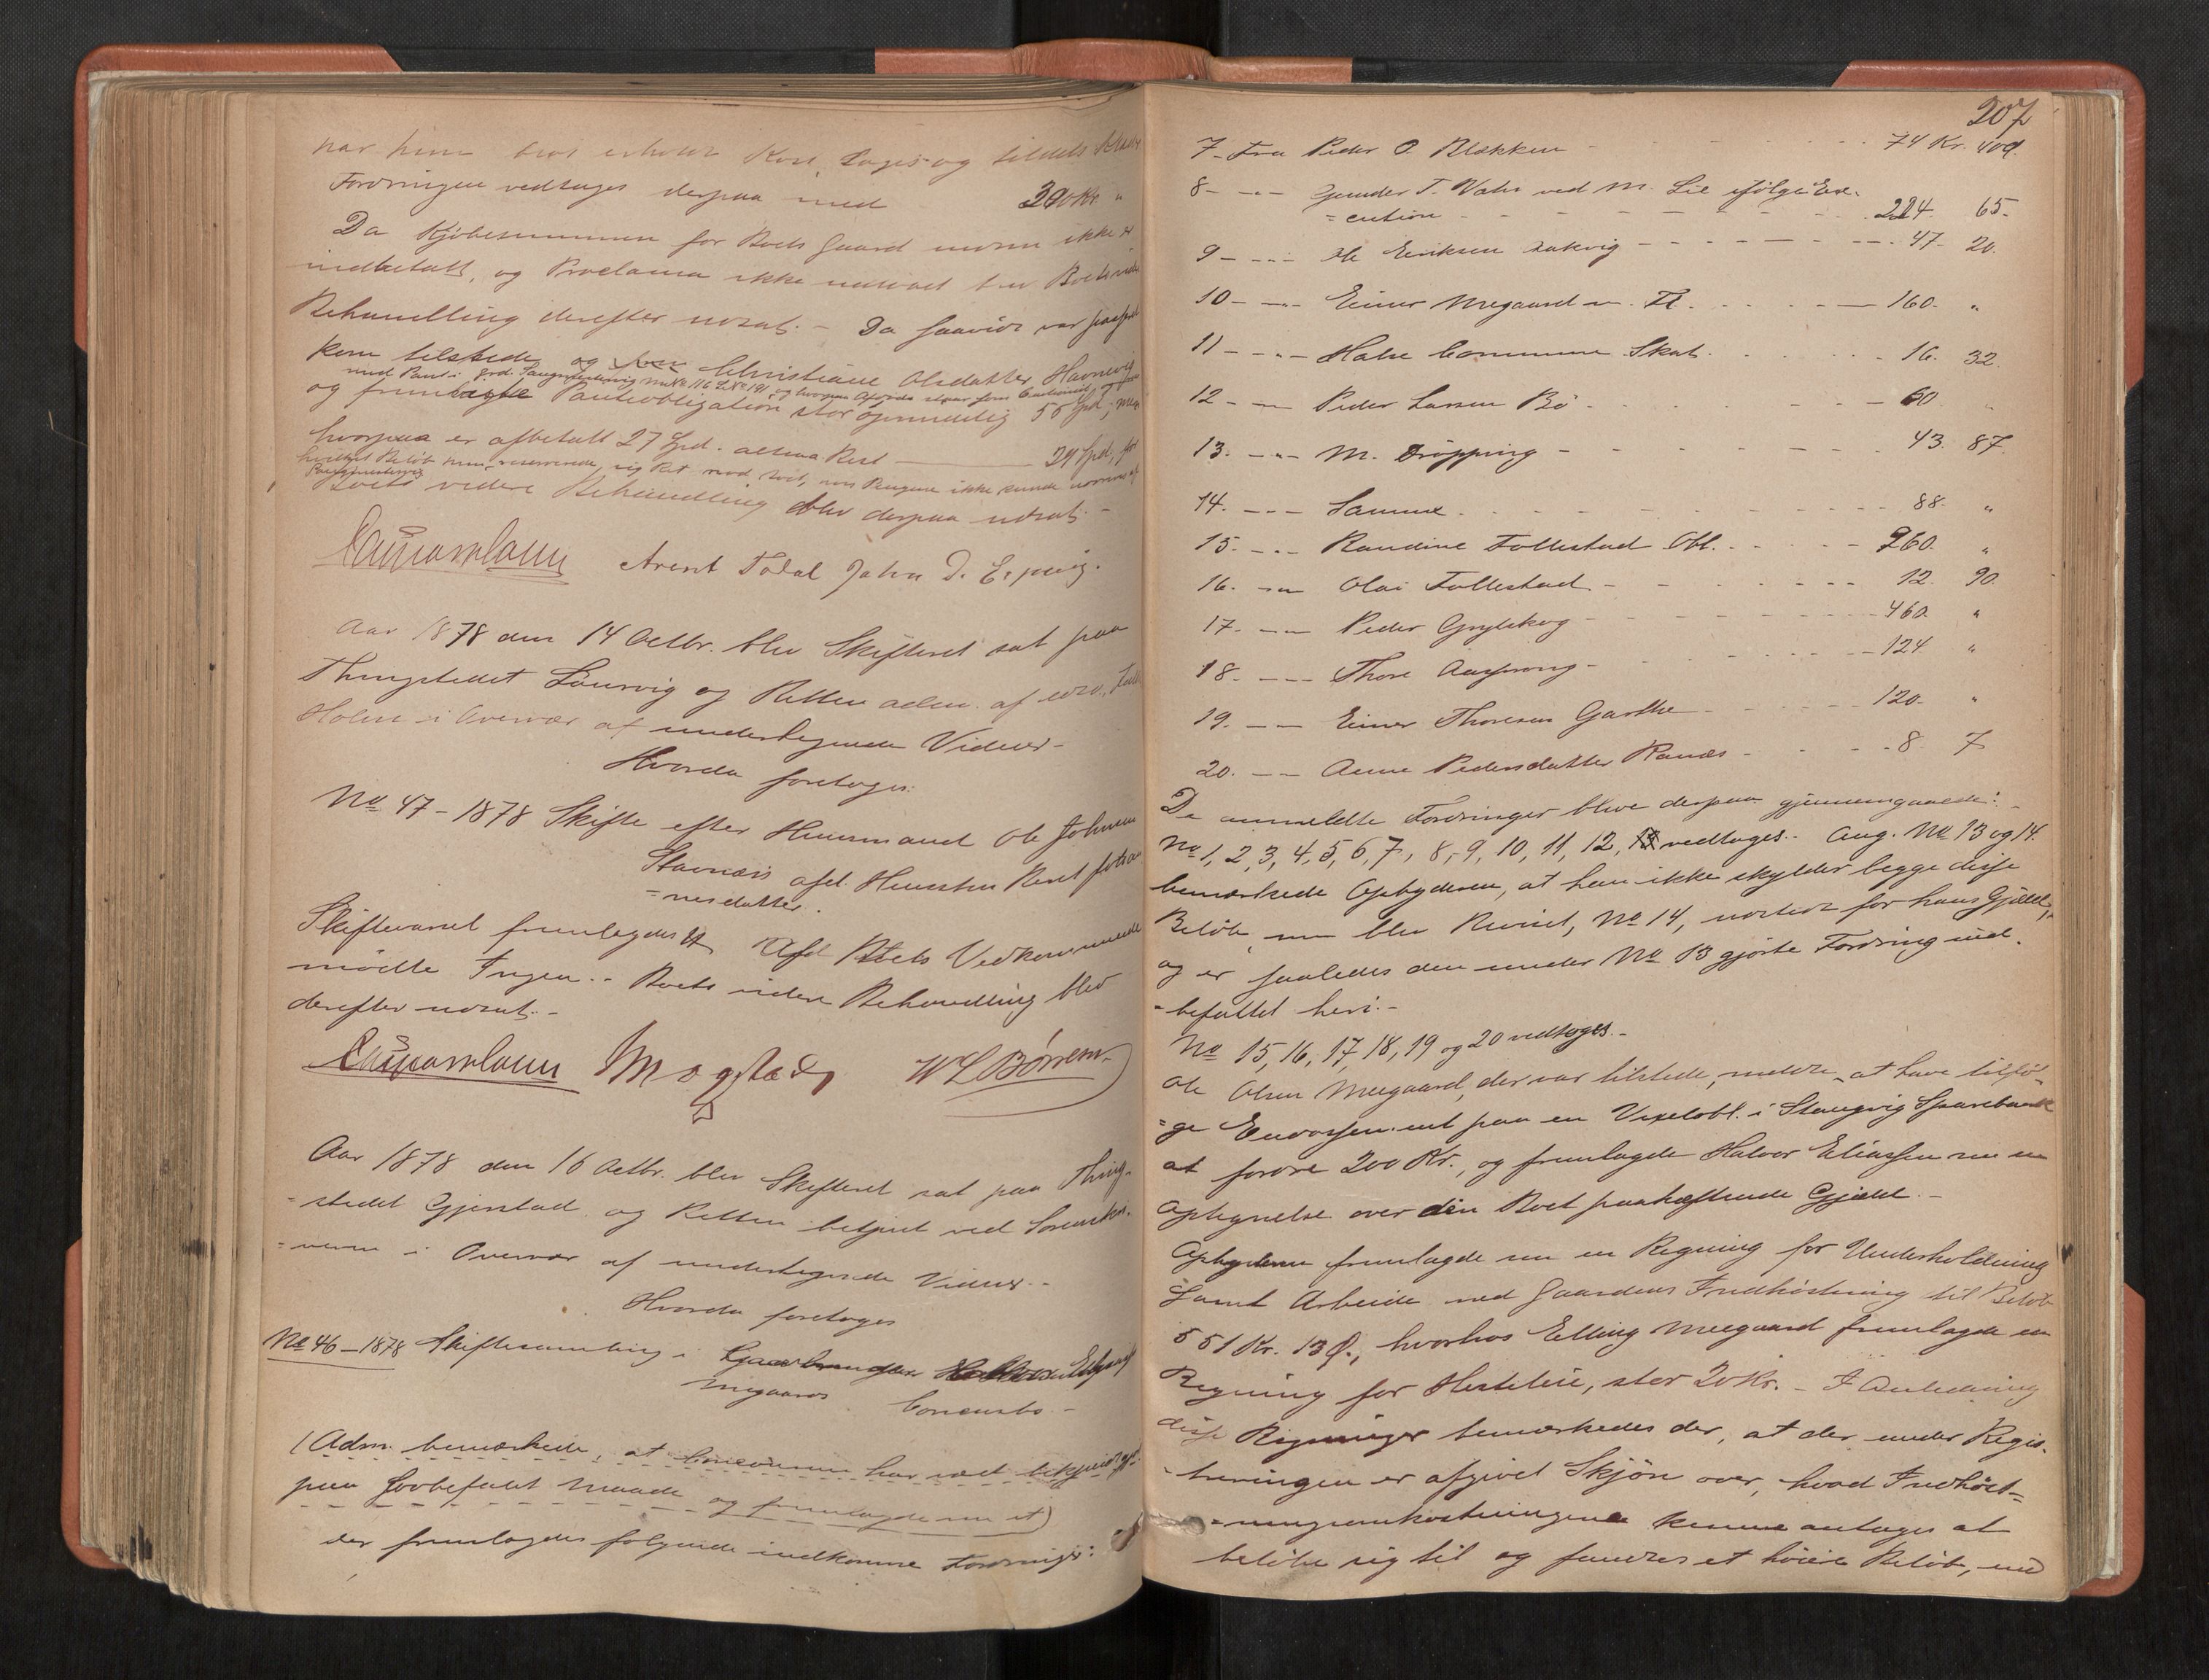 har hun hos erholdt Kost, Logis og tildels Klæder
Fordringen vedtages derpaa med 390 Kr. "
Da Kjöbesummen for Boets Gaard endnu ikke er
indbetalt, og Proclama ikke udløbet blev Boets videre
Behandling derefter udsat. - Da saavidt var passeret
kom tilstede og Christiane Olsdatter Havnevig
med Pant i Grd. Saugmestervig No 116 L No 191
og fremlagte Panteobligation stor oprindelig 55 Spd,
hvorpaa er afbetalt 27 Spd. altsaa Rest 24 Spd, for
hvilket Beløb hun reserverede sig Ret mod Boet, om Pengene ikke kunde
Boets videre Behandling blev derpaa udsat. -
Arent Todal John D. Espvig.
Aar 1878 den 14 Octbr. blev Skifteret sat paa
Thingstedet Sürvig og Retten adm. af edsv. Fuldm.
Holm i Overvær af undertegnede Vidner -
Hvorda foretoges:
No 47 - 1878 Skifte efter Huusmand Ole Johnsen
Stavnæs afd. Huustru Beret Johan
= nesdatter.
Skiftevarsel fremlagdes Af Boets Vedkommende
mødte Ingen. - Boets videre Behandling blev
derefter udsat. -
Mogstad W L Börresen
Aar 1878 den 16 Octbr. blev Skifteret sat paa Thing-
= stedet Gjerstad og Retten betjent ved Sorenskri-
= veren i Overvær af undertegnede Vidner. -
Hvorda foretoges
No 46 - 1878 Skiftesamling i Gaardmand Halvor Eliassen
Megaards Concursbo. -
(Adm. bemærkede, at Concursen har været bekjendtgjort
paa lovbefalet Maade og fremlagde nu et)
der fremlagdes følgende indkomne Fordringer:
207
7 - Fra Peder O. Blekken - 74 Kr. 40 Ø.
8 - - " - Gunder T. Vahr ved M. Lie ifölge Exe-
= cution - 224. 65.
9 - - " - Ole Eriksen Sakvig - 47. 20.
10 - - " - Einer Megaard m. Fl. - 160. "
11 - - " - Halse Commune Skat. - 16. 32
12 - - " - Peder Larsen Bö - 60. "
13. - " - M. Dröpping - 43. 87.
14. - " - Samme - 88. "
15. - " - Randine Follestad Obl. - 260. "
16. - " - Olai Follestad - 12. 90.
17. - " - Peder Grylskog - 460. "
18. - " - Thore Aasprong - 124 "
19. - " - Einer Thoresen Garthe - 120. "
20. - " - Anne Pedersdatter Ranæs - 8. 7
De anmeldte Fordringer bleve derpaa gjennemgaaede: -
No 1, 2, 3, 4, 5, 6, 7, 8, 9, 10, 11, 12, vedtages. - Ang. No 13 og 14.
bemærkede Opbyderen, at han ikke skylder begge disse
Beløb, men blev Beviset, No 14, udstedt for hans Gjæld,
og er saaledes den under No 13 gjorte Fordring ind-
= befattet heri. -
No 15, 16, 17, 18, 19 og 20 vedtages. -
Ole Olsen Meegaard, der var tilstede, meldte at have tilföl-
= ge Endossement paa en Vexelobl. i Stangvig Sparebank
at fordre 200 Kr., og fremlagde Halvor Eliassen nu en
Optegnelse over den Boet paahæftende Gjæld. -
Opbyderen fremlagde nu en Regning for Underholdning
samt Arbeide med Gaardens Indhöstning til Belöb
551 Kr. 13 Ø., hvorhos Elling Meegaard fremlagde en
Regning for Hesteleie, stor 20 Kr. - I Anledning
disse Regninger bemærkedes der, at der under Regis-
= treringen er afgivet Skjön over, hvad Indhöst-
= ningsomkostningerne kunne antages at
belöbe sig til og fandtes et höiere Belöb, end